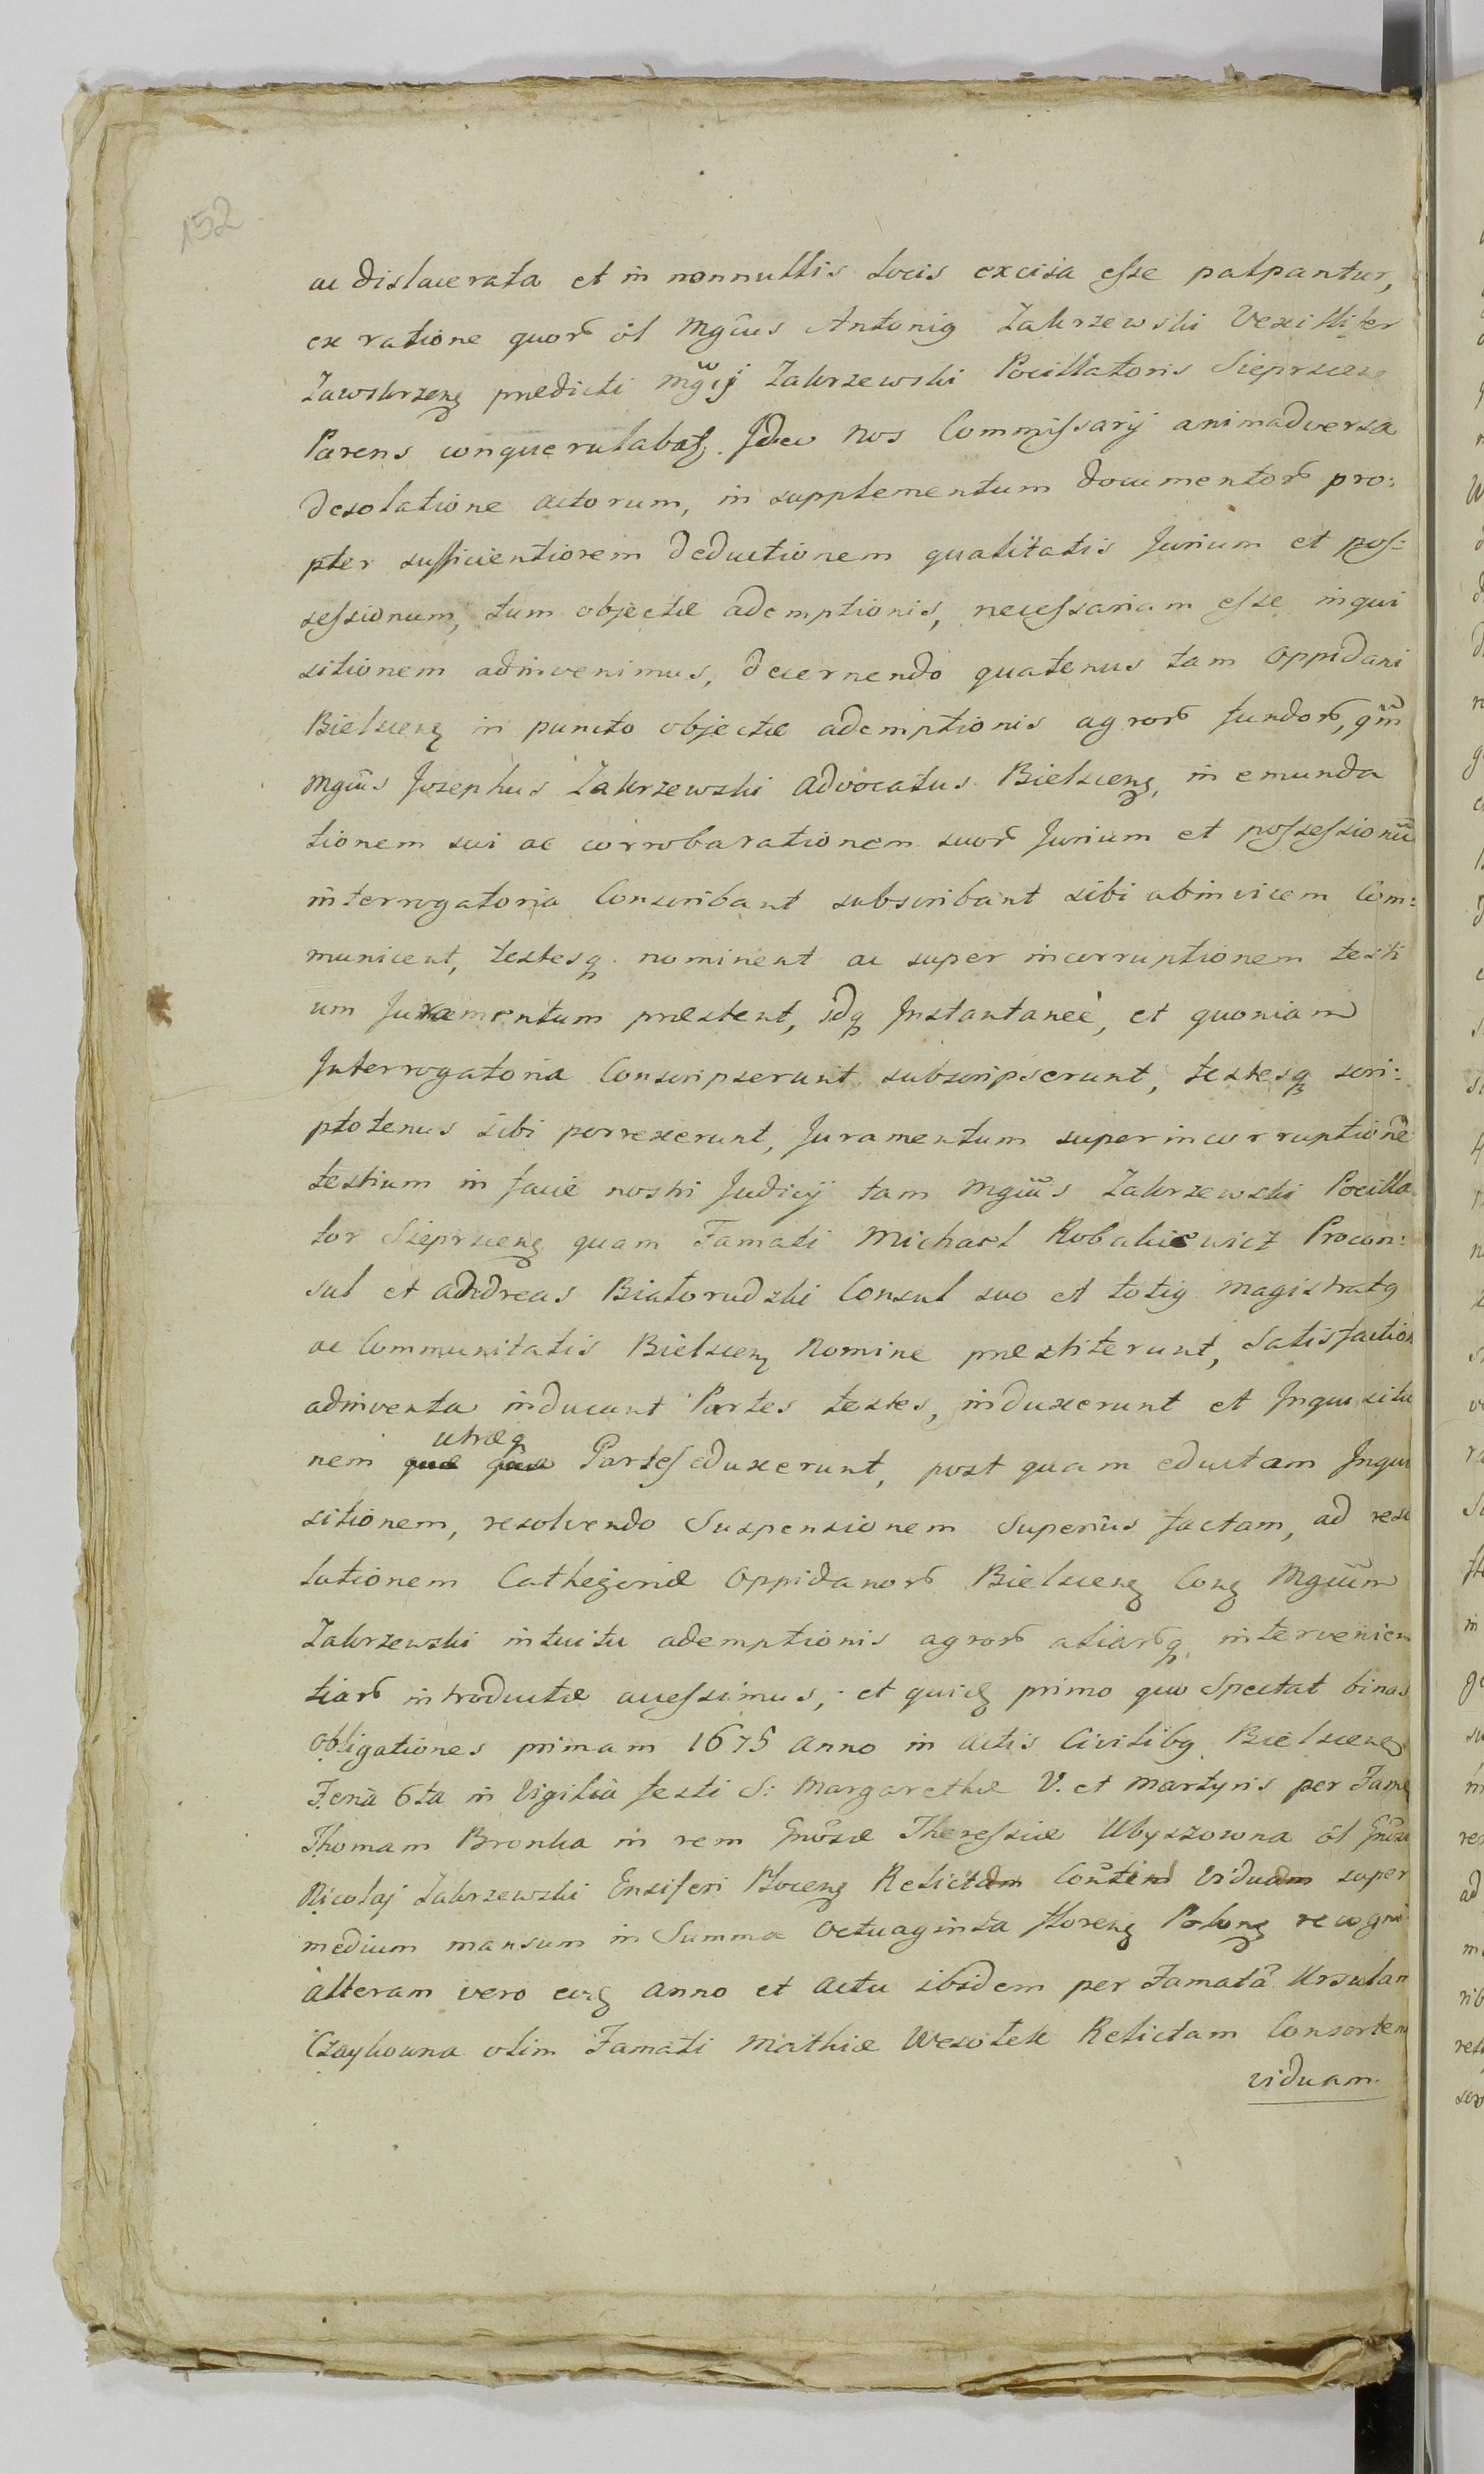 152
ac dislacerata et in nonnullis locis excisa esse palpantur,
ex ratione quor̃ ol̃ Mgcus Antonig Zakrzewski Vexillifer
Zawskrzeng prædicti Mgcij Zakrzewski Pocillatoris Sieprceng
Parens conquerulabatz. Ideo Nos Commissarij animadversa
desolatione actorum, in supplementum documentor̃ pro:
pter sufficientiorem deductionem qualitatis Jurium et pos:
sessionum, tum objectæ ademptionis, necessariam esse inqui
sitionem adinvenimus, decernendo quatenus tam Oppidani
Bielsceng in puncto objectæ ademptionis agror̃ fundor̃, qm̃
Mgcus Josephus Zakrzewski Advocatus Bielsceng, in emunda
tionem sui ac corrobarationem suor̃ Jurium et possessionũ
interrogatoria Conscribant subscribant sibi abinvicem Com:
municent, testesq nominent ac super incorruptionem testi
um Juramentum præstent, idq Instantaneè, et quoniam
Interrogatoria Conscripserunt subscripserunt, testesq scri:
ptotenus sibi porrexerunt, Juramentum super incorruptionẽ
testium in facie nostri Judicij tam Mgcus Zakrzewski Pocilla
tor Sieprceng quam Famati Michael Robakiewicz Procon:
sul et Andreas Białorudzki Consul suo et totig Magistratg
ac Communitatis Bielsceng Nomine præstiterunt, Satisfaction
adinventa inducant Partes testes, induxerunt et Inquisitio
nem quæ quæ utræq Partes eduxerunt, post quam eductam Inqui
sitionem, resolvendo Suspensionem Superius factam, ad reso
lutionem Cathegoriæ Oppidanor̃ Bielsceng Cong Mgcum
Zakrzewski intuitu ademptionis agror̃ aliar̃q intervenien
tiar̃ introductæ accessimus, et quidg primo quo Spectat binas
Obligationes primam 1675 Anno in Actis Civilibg Bielsceng
Feria 6ta in Vigilia festi S: Margarethæ V. et Martyris per Fam
Thomam Bronka in rem Gnosæ Theressiæ Ubyszowna ol̃ Gnosi
Nicolaj Zakrzewski Ensiferi Ploceng Relictam Contem Viduam super
medium mansum in Summa Octuaginta floreng Polong recogni
alteram vero eog Anno et Actu ibidem per Famatã Ursulam
Czaykowna olim Famati Mathiæ Wesołek Relictam Consortem
viduam.